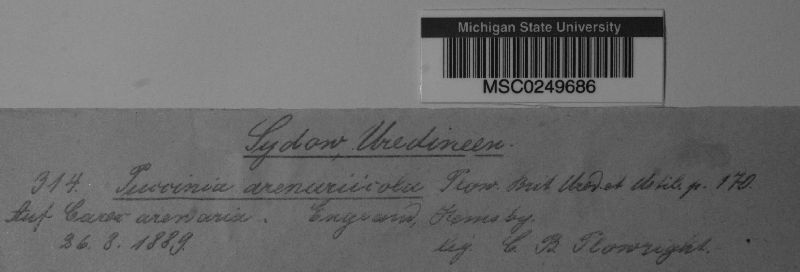 Michigan State University
MSC0249686
Sydow, Uredineen.
314. Puccinia arenariicola Plow. Brit Ured et Ustil. p. 170.
Auf Carex arenaria. England, Hemsby.
26. 8. 1889. leg. C. B. Plowright.